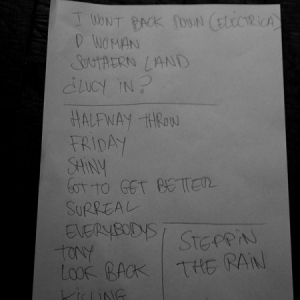 I WONT BACK DOWN (ELECTRICA)
D WOMAN
SOUTHERN LAND
¿LUCY IN?
HALFWAY THROW
FRIDAY
SHINY
GOT TO GET BETTER
SURREAL
EVERYBODYS
TONY
LOOK BACK
KILLING
STEPPIN
THE RAIN